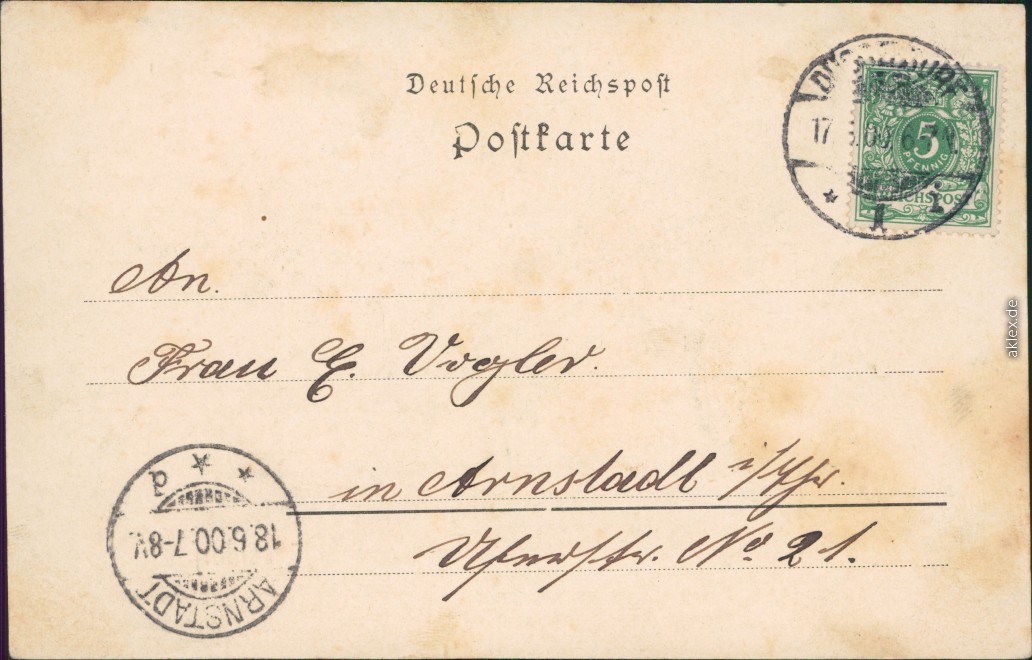 Deutsche Reichspost
Postkarte
17. .00 6-7 N.
* 1 i
5
PFENNIG
REICHSPOST
An
Frau E. Vogler.
in Arnstadt i/Thr.
Uferstr. No 21.
ARNSTADT
18.6.00.7-8V.
* * d
aklex.de